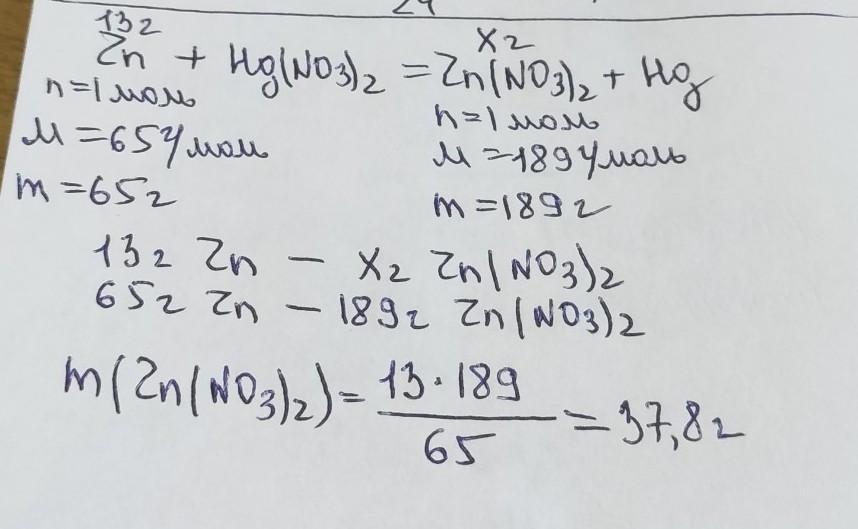 13г хг
Zn + Hg(NO3)2 = Zn(NO3)2 + Hg
n=1моль n=1моль
M=65г/моль M=189г/моль
m=65г m=189г
13г Zn — хг Zn(NO3)2
65г Zn — 189г Zn(NO3)2
m(Zn(NO3)2) = 13·189
65
= 37,8г